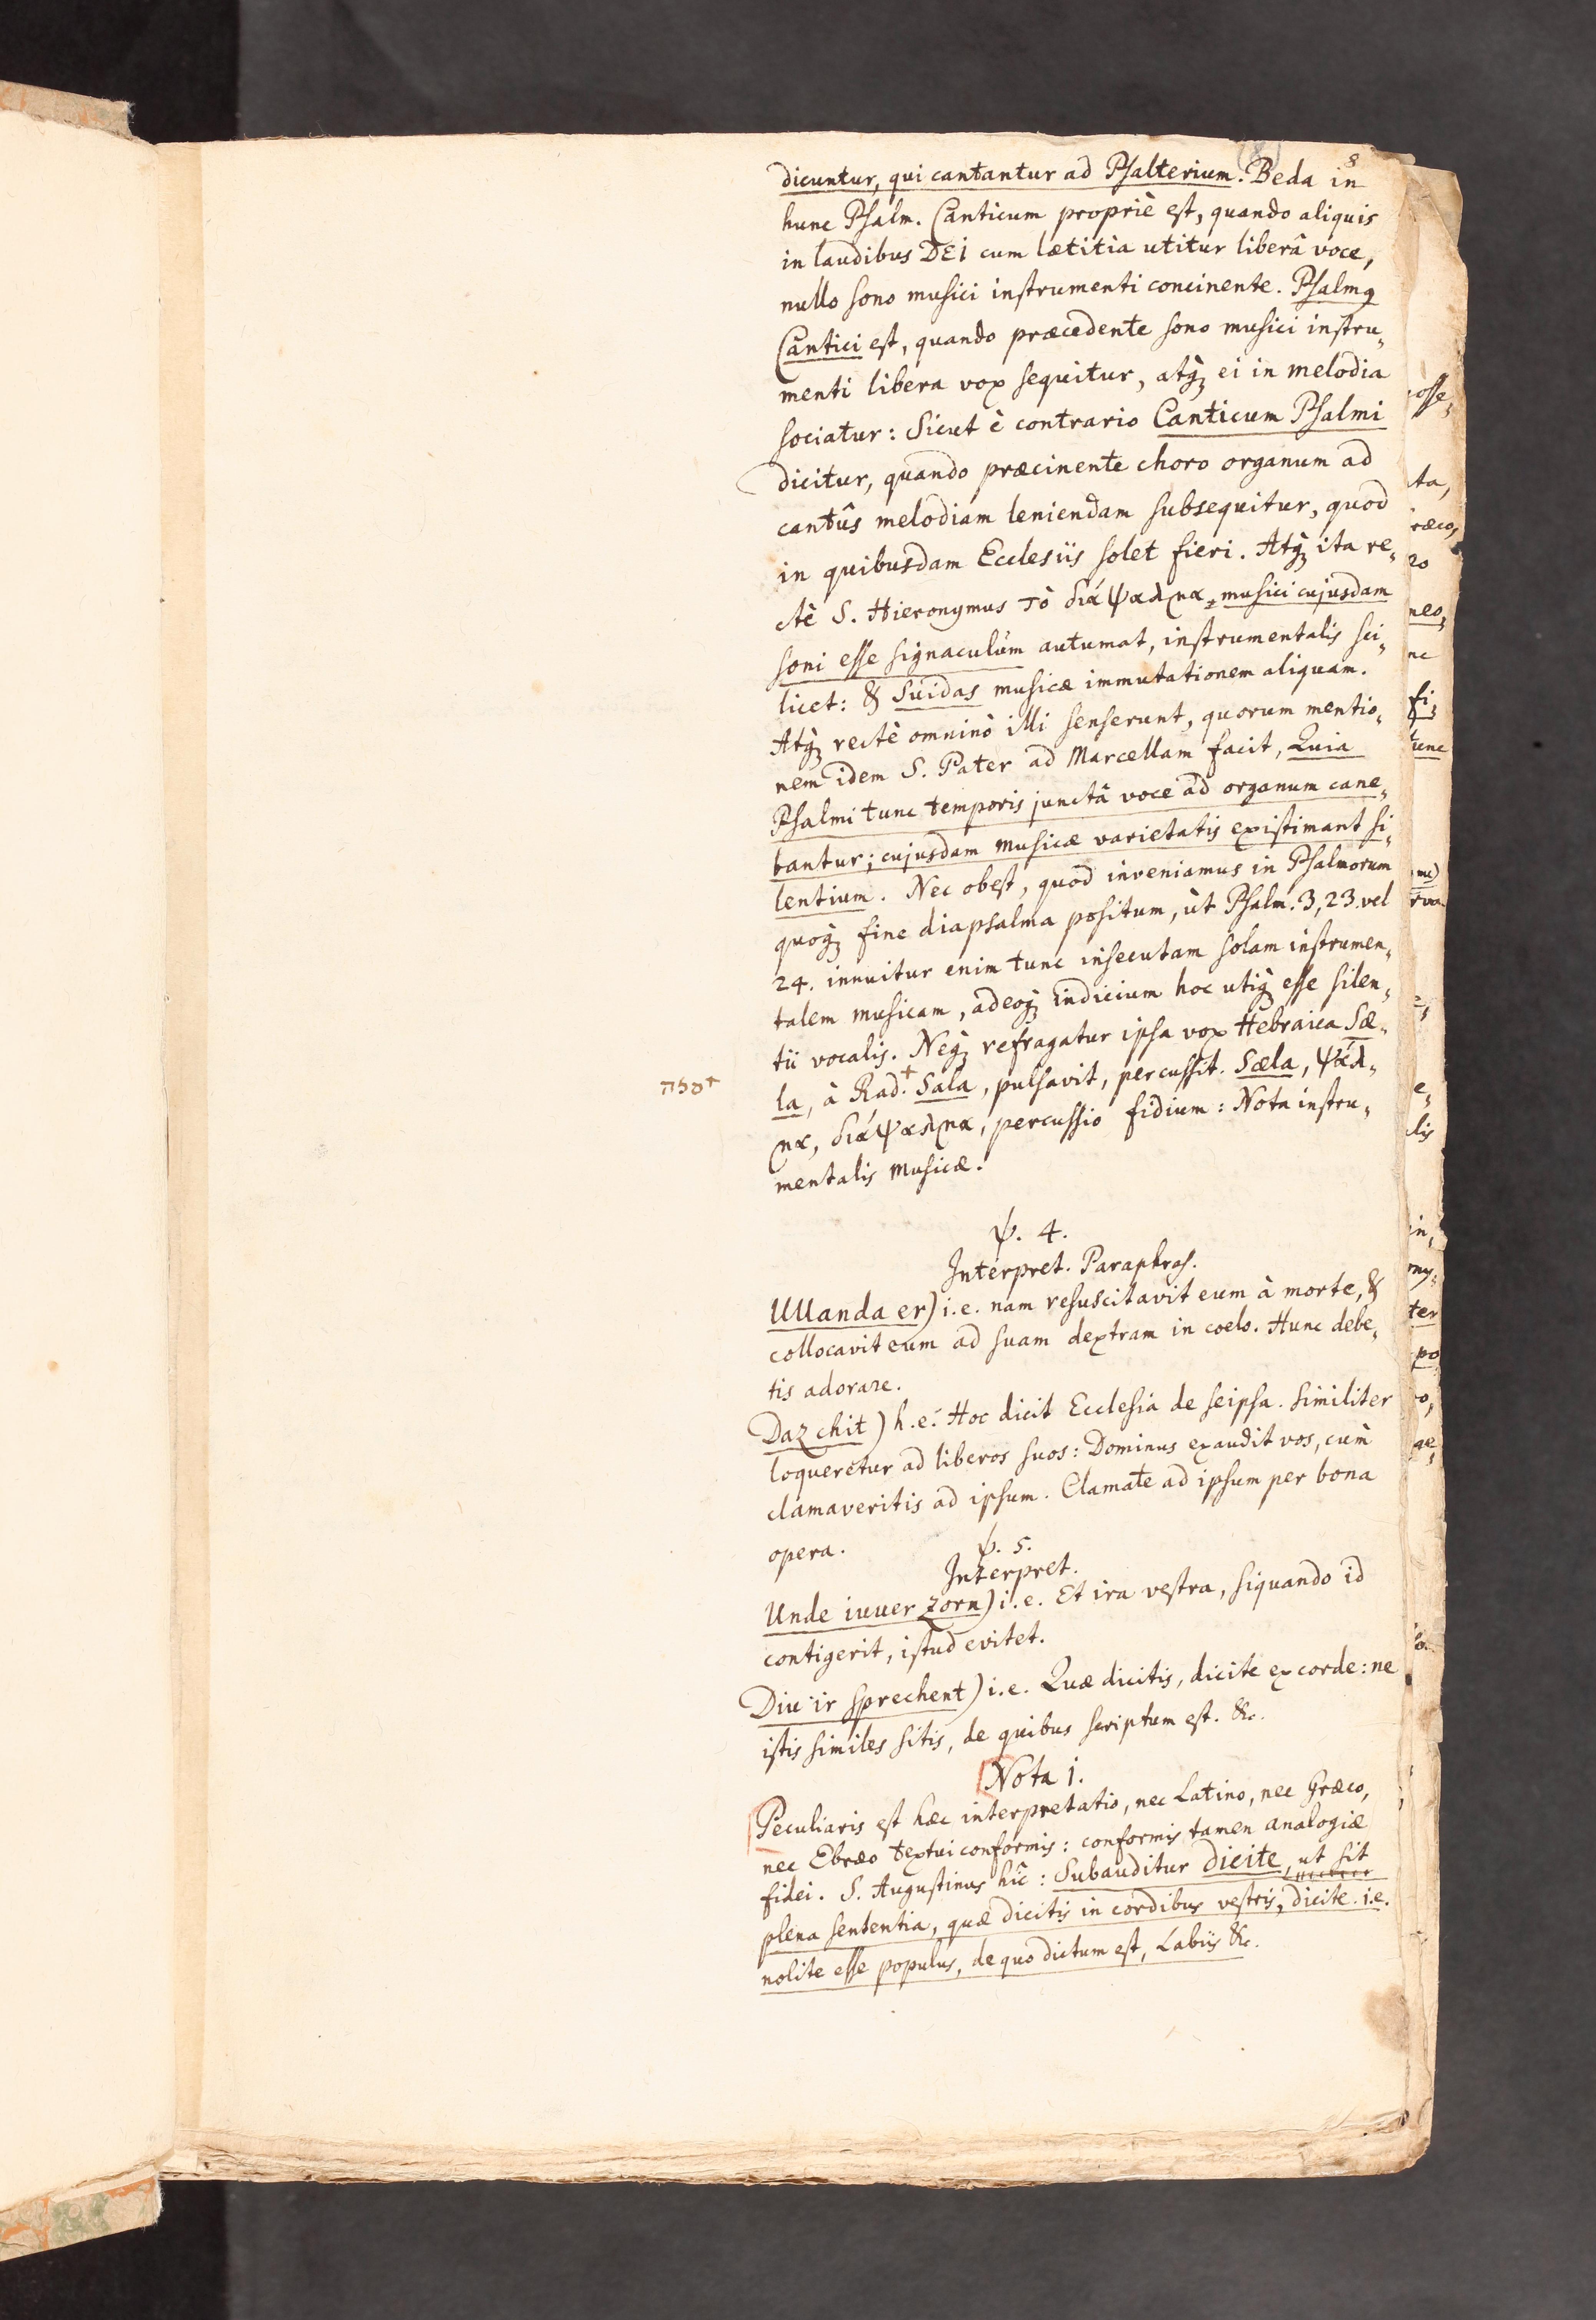 8
dicuntur, qui cantantur ad Psalterium. Beda in
hunc Psalm. Canticum propriè est, quando aliquis
in laudibus DEI cum lætitia utitur liberâ voce,
nullo sono musici instrumenti concinente. Psalmq
Cantici est, quando præcedente sono musici instru„
menti libera vox sequitur, atq̀₃ ei in melodia
sociatur: Sicut è contrario Canticum Psalmi
dicitur, quando præcinente choro organum ad
cantûs melodiam leniendam subsequitur, quod
in quibusdam Ecclesiis solet fieri. Atq̀₃ ita re„
ctè S. Hieronymus τὸ διάψαλμα, musici cujusdam
soni esse signaculum autumat, instrumentalis sci„
licet: & Suidas musicæ immutationem aliquam.
Atq̀₃ rectè omninò illi senserunt, quorum mentio„
nem idem S. Pater ad Marcellam facit, Quia
Psalmi tunc temporis junctâ voce ad organum cane„
bantur; cujusdam musicæ varietatis existimant si„
lentium. Nec obest, quod inveniamus in Psalmorum
quoq̀₃ fine diapsalma positum, ùt Psalm. 3, 23. vel
24. innuitur enim tunc insecutam solam instrumen„
talem musicam, adeoq̀₃ indicium hoc utiq̀₃ esse silen„
tii vocalis. Neq̀₃ refragatur ipsa vox Hebraica Sæ„
la, à Rad. + Sala, pulsavit, percussit. Sæla, ψάλ„
סלה +
μα, διάψαλμα, percussio fidium: Nota instru„
mentalis musicæ.
ψ. 4.
Interpret. Paraphras.
UUanda er) i.e. nam resuscitavit eum à morte, &
collocavit eum ad suam dextram in coelo. Hunc debe„
tis adorare.
Daz chit) h.e. Hoc dicit Ecclesia de seipsa. Similiter
loqueretur ad liberos suos: Dominus exaudit vos, cùm
clamaveritis ad ipsum. Clamate ad ipsum per bona
opera.
ψ. 5.
Interpret.
Unde iuuer zorn) i.e. Et ira vestra, siquando id
contigerit, istud evitet.
Diu ir sprechent) i.e. Quæ dicitis, dicite ex corde: ne
istis similes sitis, de quibus scriptum est. &c.
Nota 1.
Peculiaris est hæc interpretatio, nec Latino, nec Græco,
nec Ebræo textui conformis: conformis tamen analogiæ
fidei. S. Augustinus hîc: Subauditur dicite, ut sit
plena sententia, quæ dicitis in cordibus vestris, dicite. i.e.
nolite esse populus, de quo dictum est, Labiis &c.